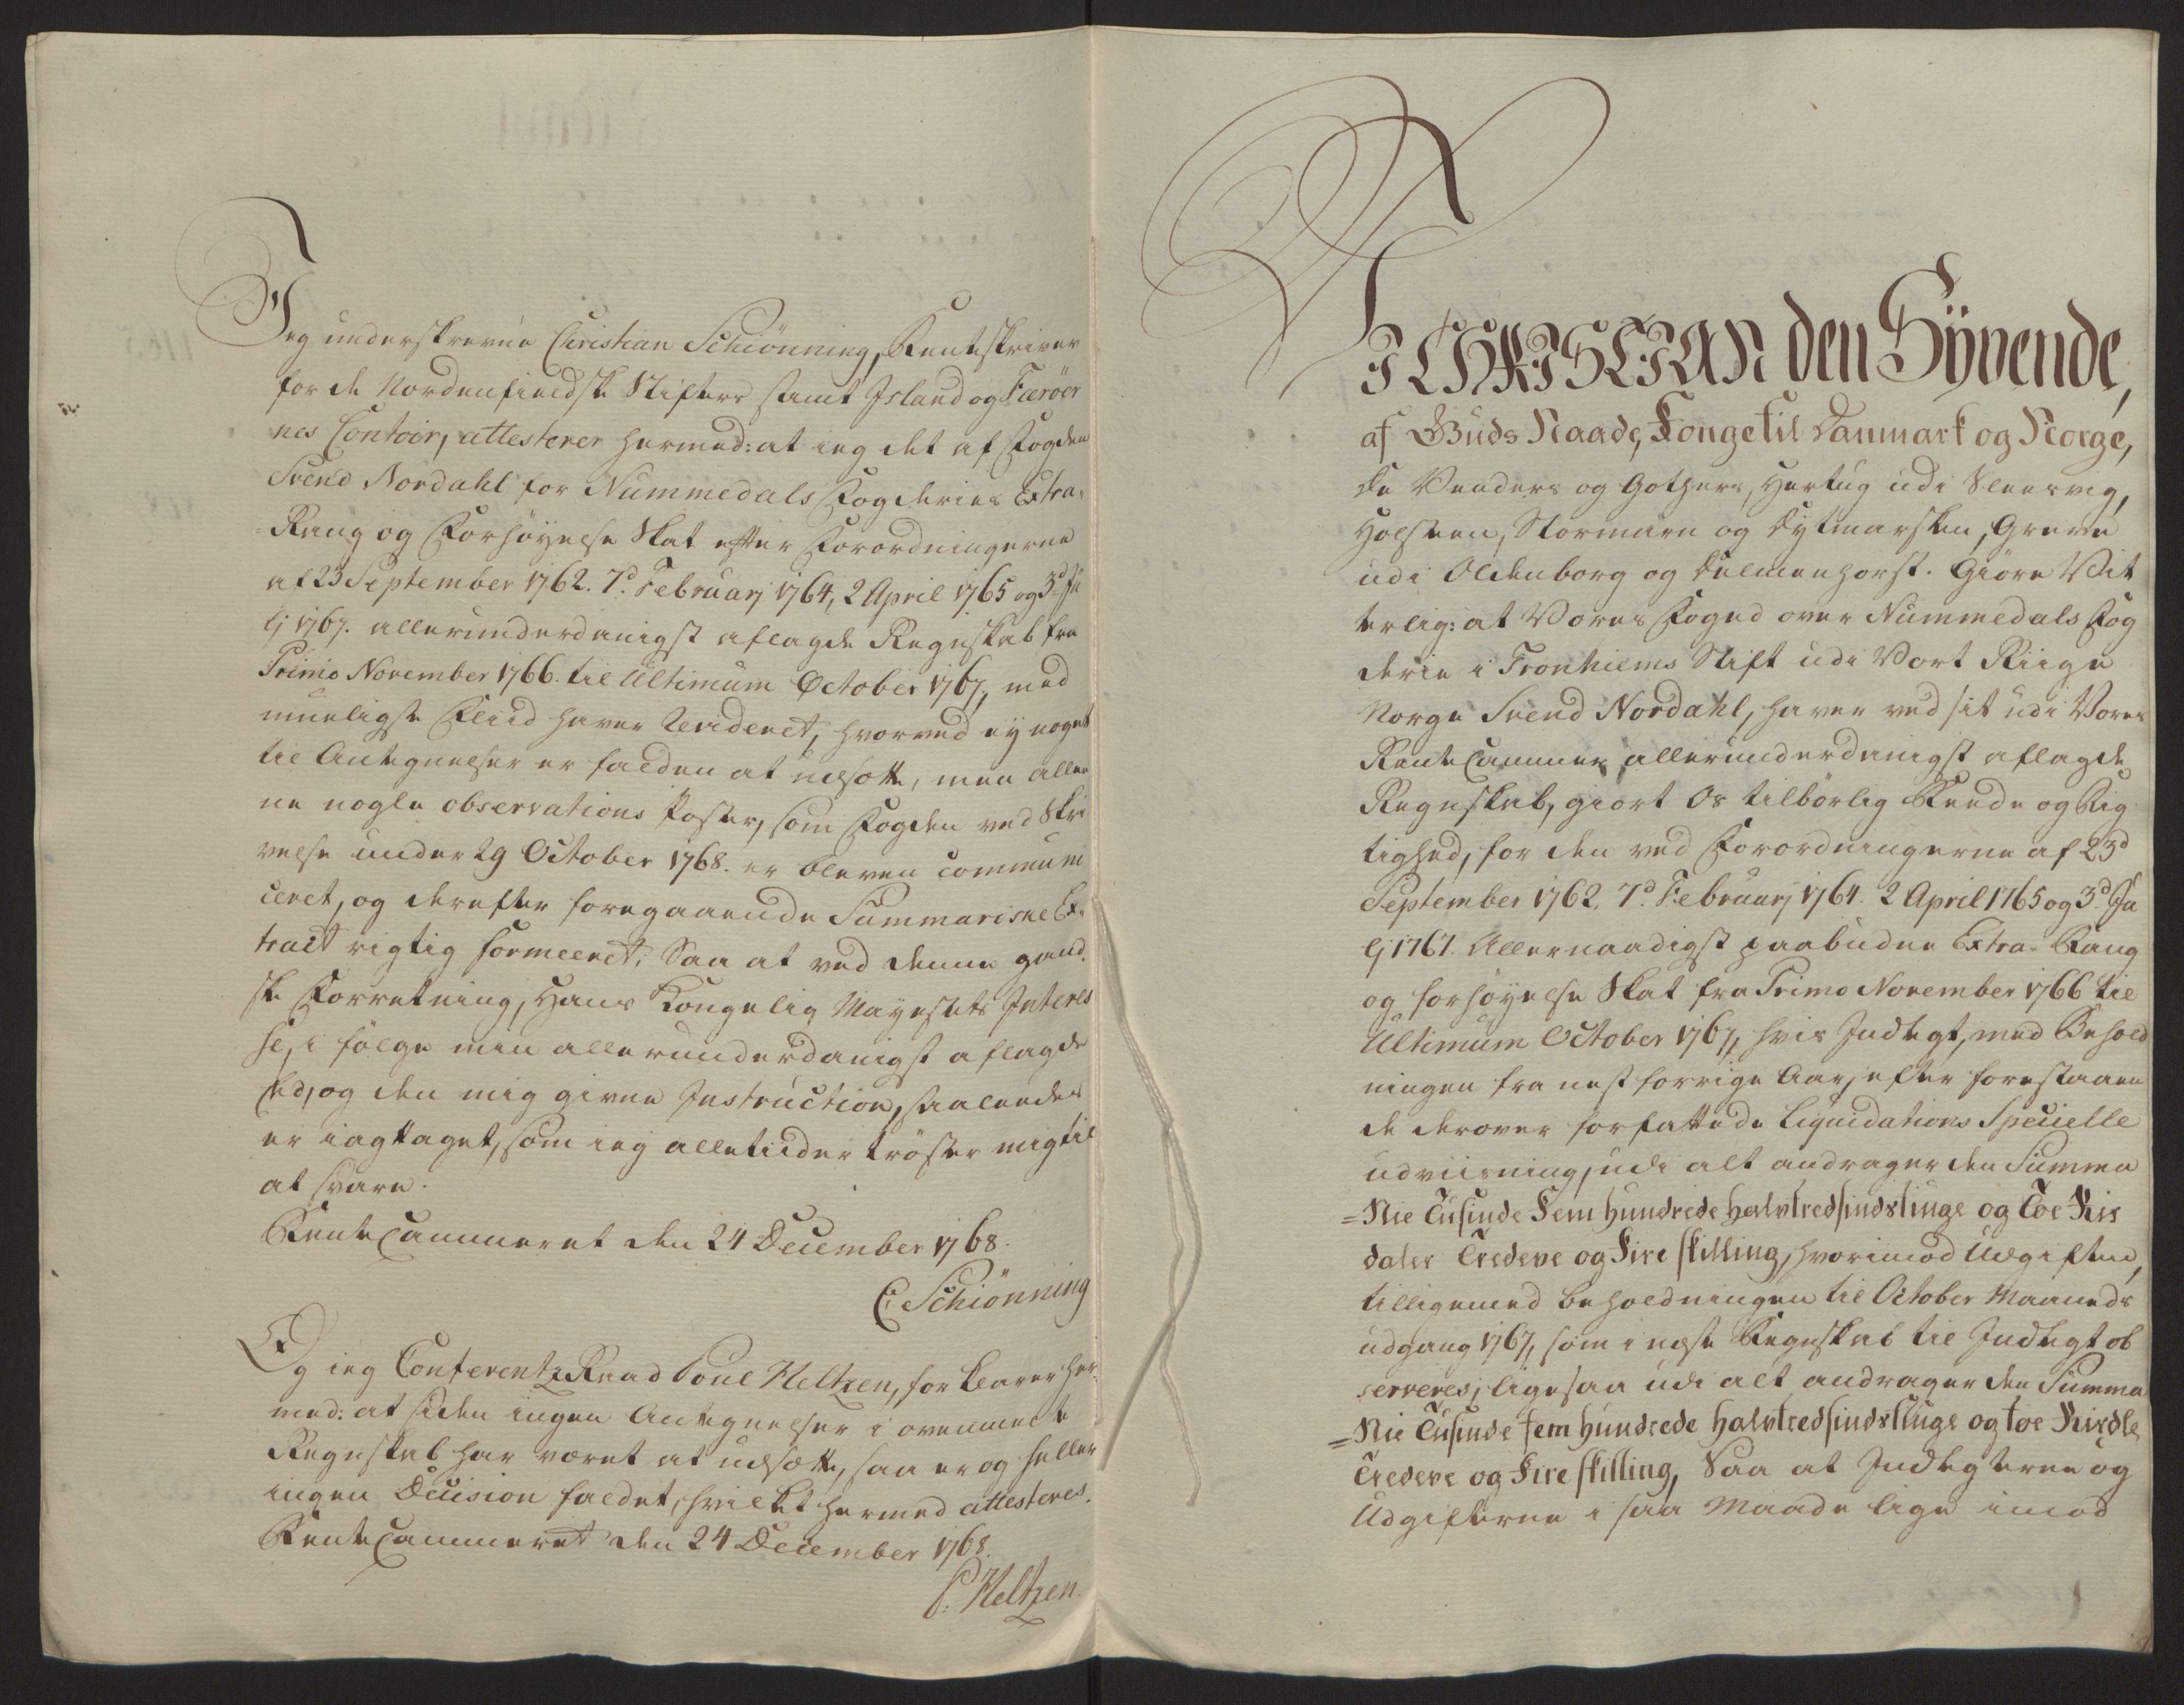 Jeg underskrevne Christian Schiönning, Rentskriver
for de Nordenfieldske Stifters samt Island og Færöer
nes Contoir, attesterer hermed: at ieg det af Fogden
Svend Nordahl for Nummedals Fogderies Extra-
Rang og Forhöyelse Skat efter Forordningerne
af 23 September 1762. 7.d Februarj 1764, 2 April 1765 og 3d Ju
lj 1767. allerunderdanigst aflagde Regnskab fra
Primo November 1766. til Ultimum October 1767, med
mueligste Fliid haver Revideret, hvorved ey noget
til Antegnelser er falden at udsætte, men allee
ne nogle observations Poster, som Fogden ved Skri
velse under 29 October 1768. er bleven communi
ceret, og derefter foregaaende Summariske Ex-
tract rigtig formeeret; Saa at ved denne gand-
ske Forretning, Hans Kongelig Mayestets Interes
se, i fölge min allerunderdanigst aflagde
Eed, og den mig givne Instruction, saaledes
er iagttaget, som ieg alletiider tröster mig til
at svare.
RenteCammeret den 24 December 1768.
C. Schiönning
Og ieg ConferentzRaad Poul Heltzen, forklarer her-
med: at siden ingen Antegnelser i ovenmelte
Regnskab har været at udsætte, saa er og heller
ingen Decision faldet, hvilket hermed attesteres.
RenteCammeret den 24 December 1768.
P. Heltzen.
VJ CHRISTIAN den Syvende,
af Guds Naade, Konge til Danmark og Norge,
de Venders og Gothers, Hertug udi Slesvig,
Holsteen, Stormarn og Dytmarsken, Greve
udi Oldenborg og Delmenhorst. Giöre Vit
terlig: at Vores Foged over Nummedals Fog
derie i Tronhiems Stift udi Vort Riige
Norge Svend Nordahl, haver ved sit udi Vores
RenteCammer allerunderdanigst aflagde
Regnskab, giort Os tilbörlig Reede og Rig
tighed, for den ved Forordningerne af 23d
September 1762. 7.d Februarj 1764. 2 April 1765 og 3.d Ju
lj 1767. Allernaadigst paabudne Extra- Rang
og forhöyelse Skat fra Primo November 1766 til
Ultimum October 1767, hvis Indtegt, med Behold
ningen fra nest forrige Aar, efter forestaaen
de derover forfattede Liquidations Specielle
udviisning, udi alt andrager den Summa
= Nie Tusinde Fem hundrede halvtredsindstiuge og Toe Rix
daler Tredeve og Fire skilling, hvorimod Udgiften,
tilligemed beholdningen til October Maaneds
udgang 1767, som i neste Regnskab til Indtegt ob
serveres, ligesaa udi alt andrager den Summa
= Nie Tusinde fem hundrede halvtredsindstiuge og toe Rixdlr
Tredeve og Fire skilling, Saa at Indtegterne og
Udgifterne i saa Maade lige imod